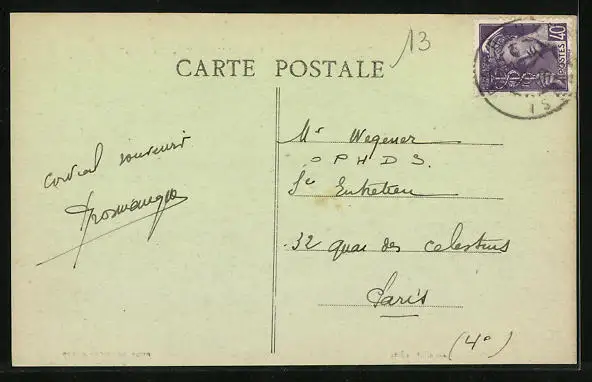 13
CARTE POSTALE
40
POSTES
Cordial souvenir
Mr Wegener
O P H D S.
Sce Entretien
32 quai des celestins
Paris
(4e)